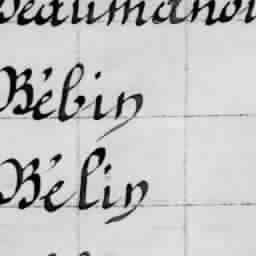 Beaumanoi
Bébin
Bélin